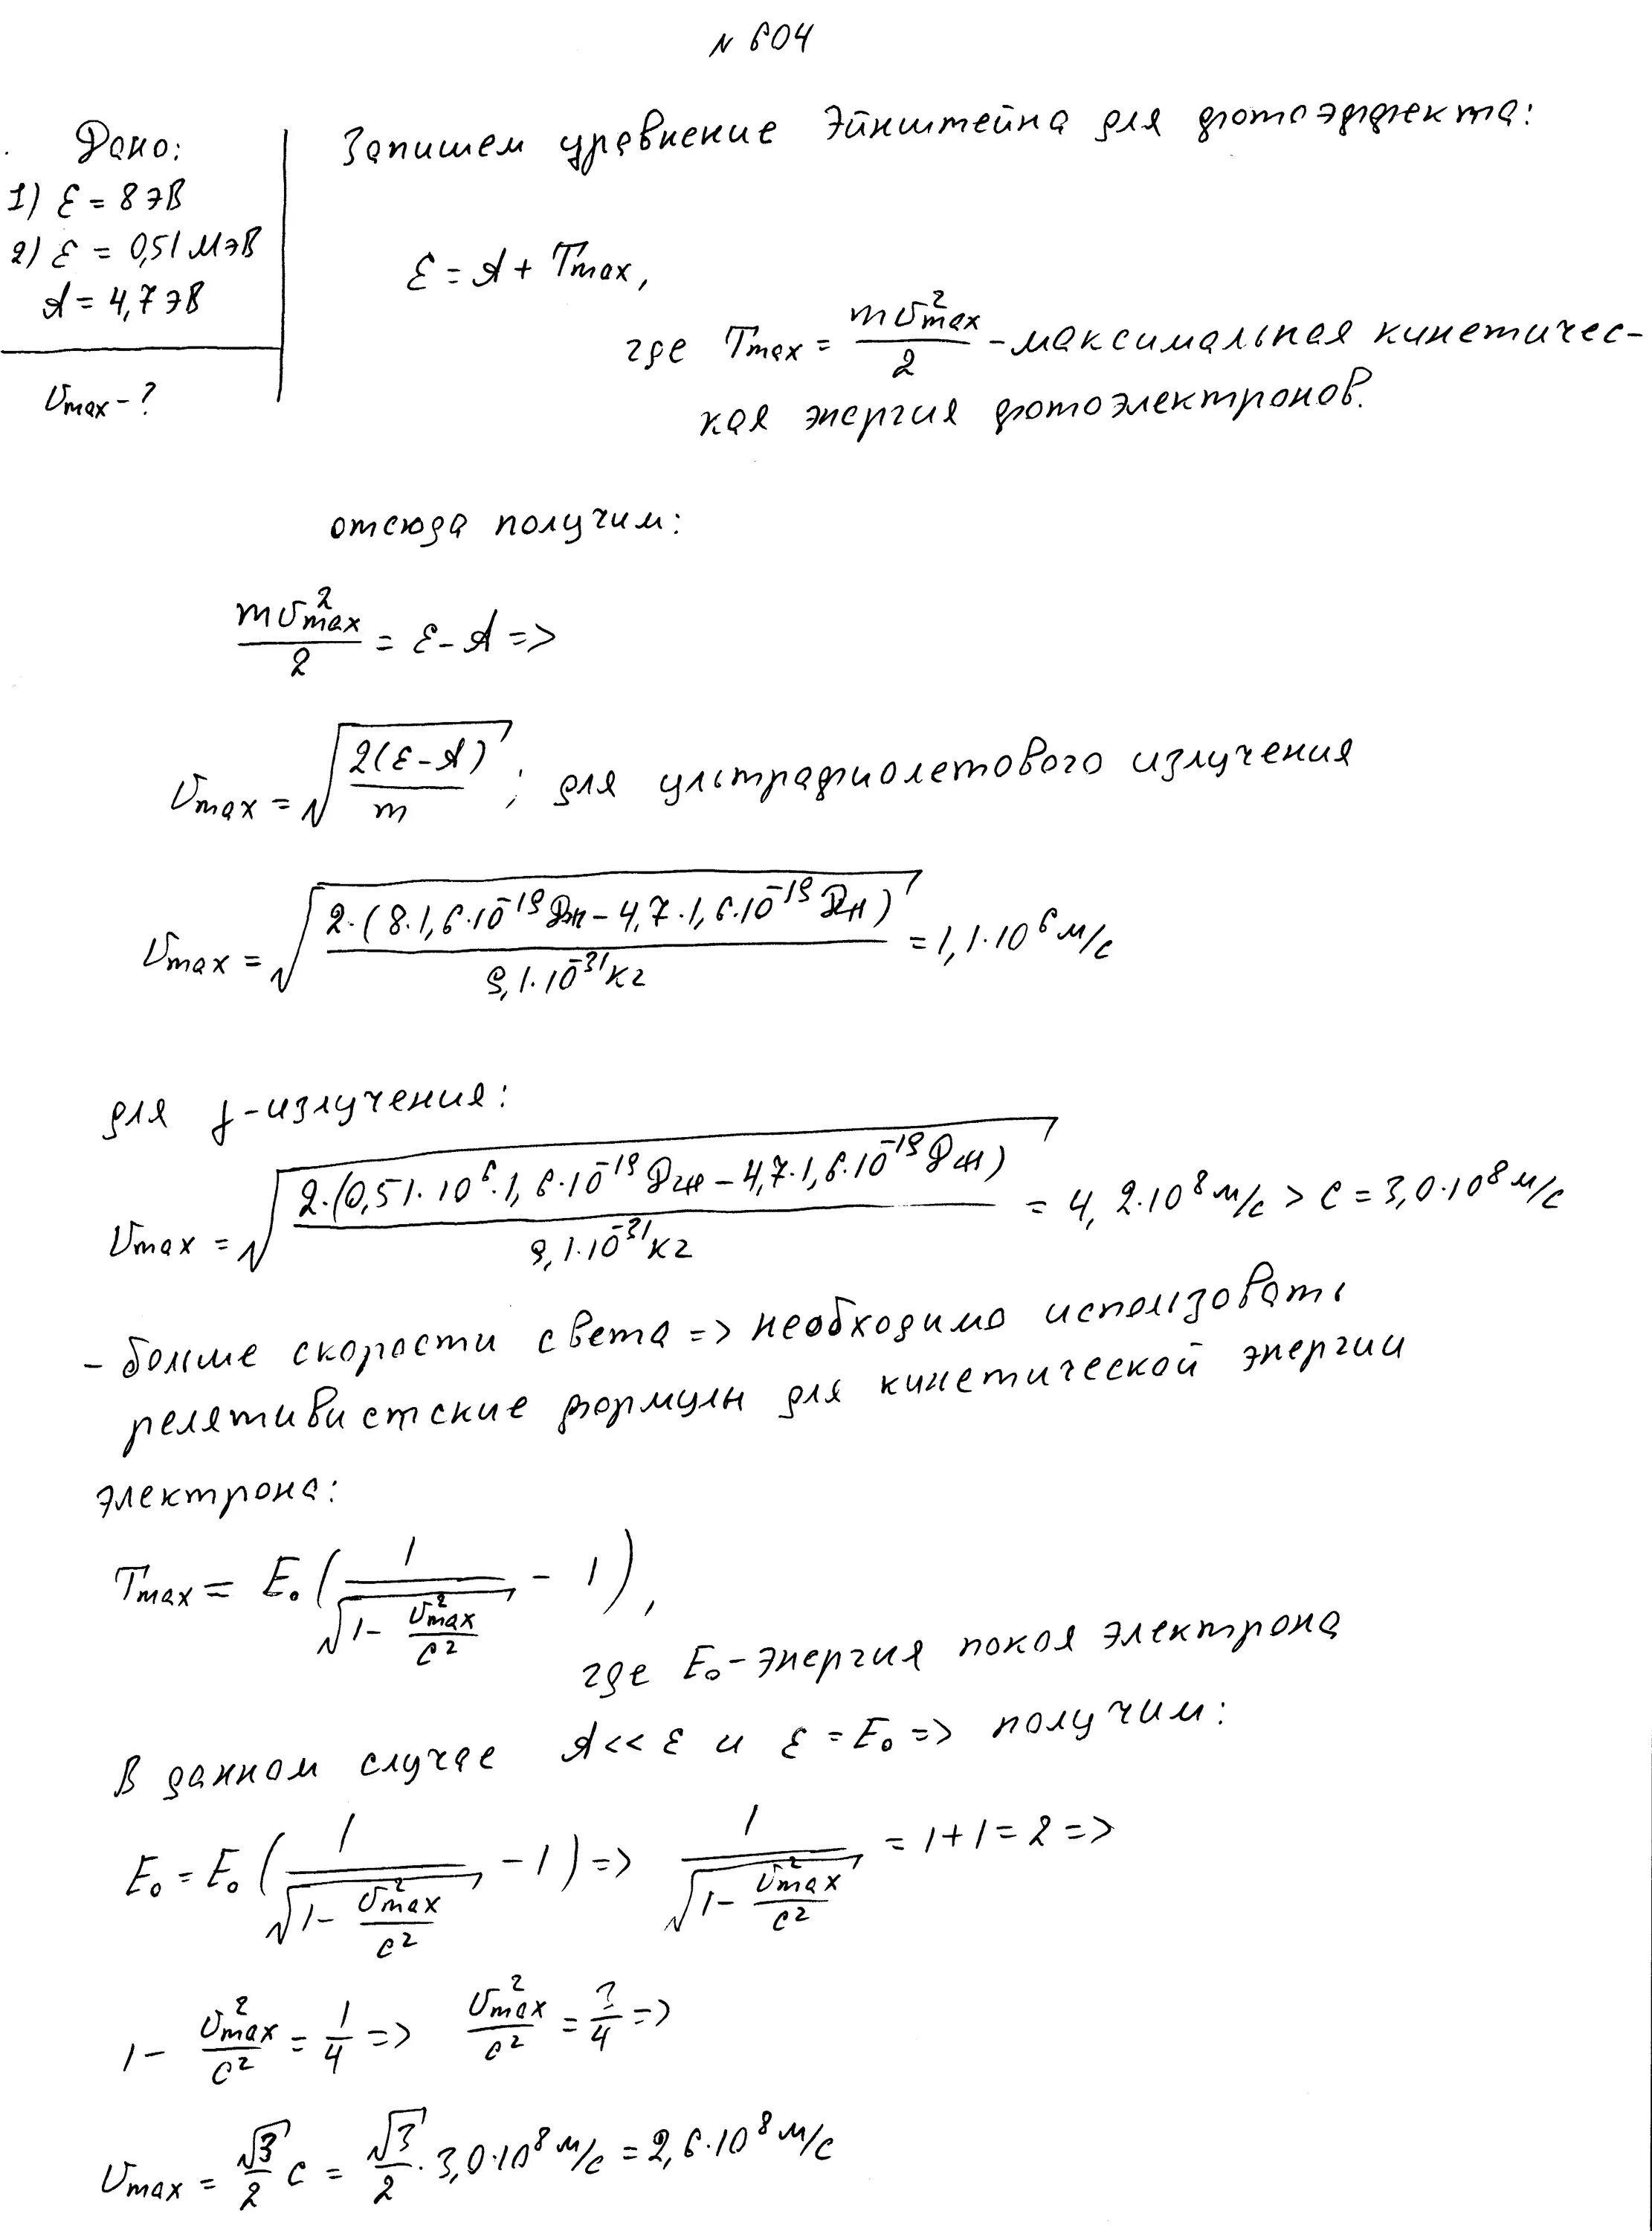 N 604
Дано:
1) ε = 8 эВ
2) ε = 0,51 МэВ
A = 4,7 эВ
υmax - ?
Запишем уравнение Эйнштейна для фотоэффекта:
ε = A + Tmax,
где Tmax = mυ²max/2 - максимальная кинетичес-
кая энергия фотоэлектронов.
отсюда получим:
mυ²max/2 = ε - A =>
υmax = √(2(ε - A)/m) ; для ультрафиолетового излучения
υmax = √(2·(8·1,6·10⁻¹⁹Дж - 4,7·1,6·10⁻¹⁹Дж)/9,1·10⁻³¹кг) = 1,1·10⁶ м/с
для γ-излучения:
υmax = √(2·(0,51·10⁶·1,6·10⁻¹⁹Дж - 4,7·1,6·10⁻¹⁹Дж)/9,1·10⁻³¹кг) = 4,2·10⁸ м/с > c = 3,0·10⁸ м/с
- больше скорости света => необходимо использовать
релятивистские формулы для кинетической энергии
электрона:
Tmax = E₀(1/√(1 - υ²max/c²) - 1),
где E₀ - энергия покоя электрона
В данном случае A << ε и ε = E₀ => получим:
E₀ = E₀(1/√(1 - υ²max/c²) - 1) => 1/√(1 - υ²max/c²) = 1+1 = 2 =>
1 - υ²max/c² = 1/4 => υ²max/c² = 3/4 =>
υmax = √3/2 c = √3/2 · 3,0·10⁸ м/с = 2,6·10⁸ м/с